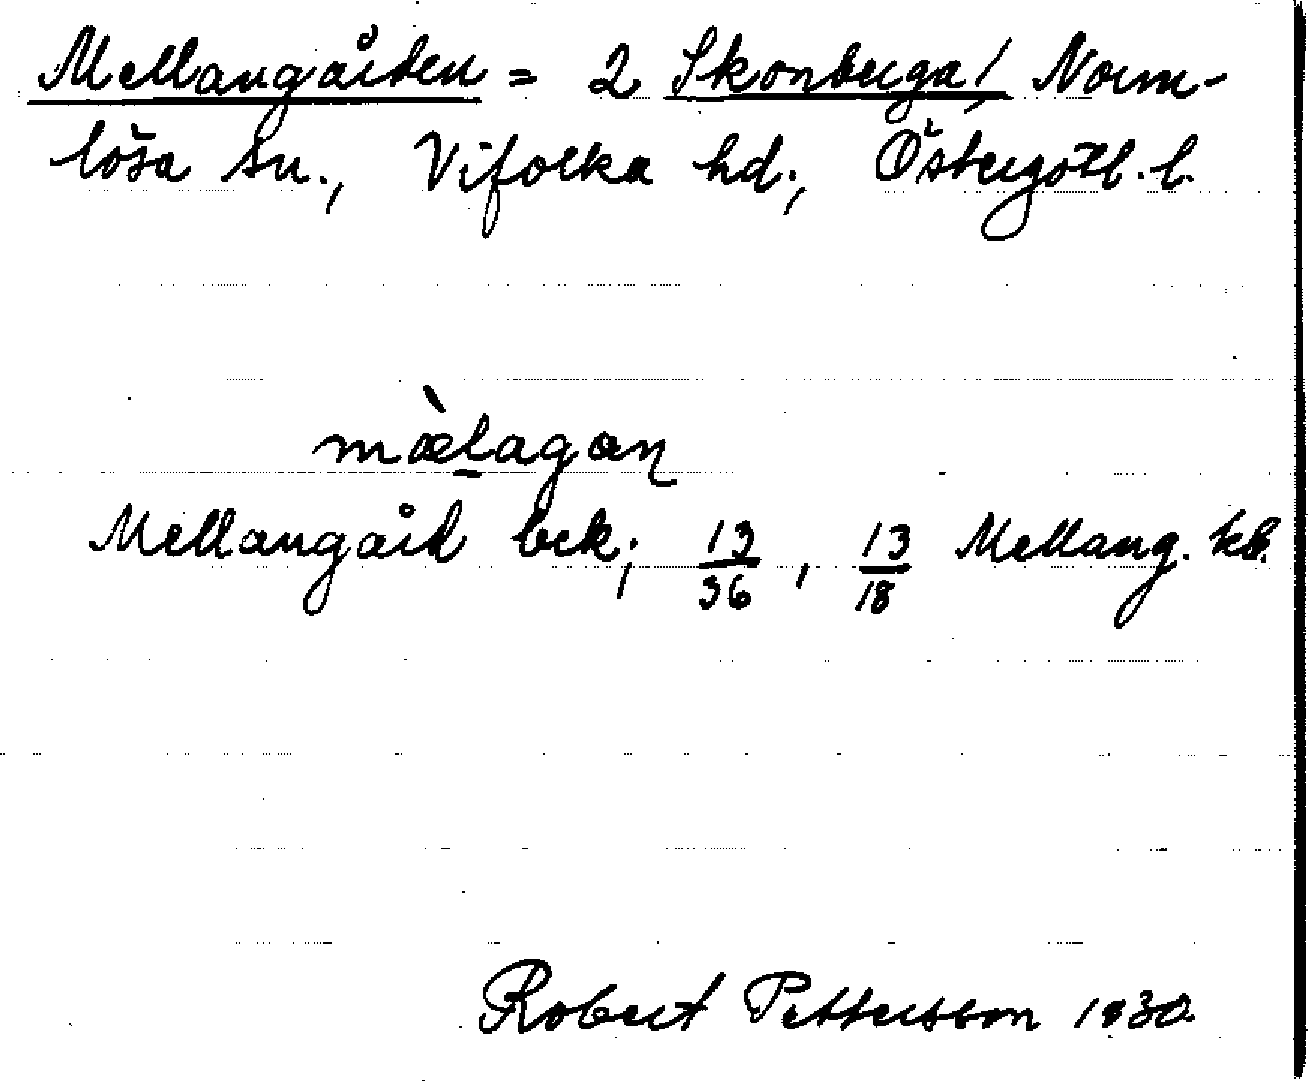 Mellangården = 2 Skonberga, Norm-
lösa sn., Vifolka hd., Östergötl. l.
mæ̀lagan
Mellangård bek., 13/36, 13/18 Mellang. kb.
Robert Pettersson 1930.